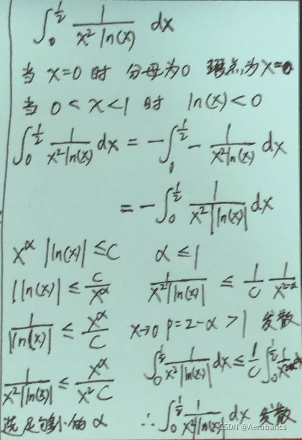 ∫₀^{1/2} 1/(x² ln(x)) dx
当 x=0 时 分母为0 瑕点为 x=0
当 0<x<1 时 ln(x)<0
∫₀^{1/2} 1/(x² ln(x)) dx = -∫₀^{1/2} - 1/(x² ln(x)) dx
= -∫₀^{1/2} 1/(x² |ln(x)|) dx
x^α |ln(x)| ≤ C α ≤ 1
|ln(x)| ≤ C/x^α 1/(x² |ln(x)|) ≤ 1/C 1/x^{2-α}
1/|ln(x)| ≤ x^α/C x→0 p=2-α>1 发散
∫₀^{1/2} 1/(x² |ln(x)|) dx ≤ 1/C ∫₀^{1/2}
1/(x² |ln(x)|) ≤ x^α/(x² C)
满足 的 α ∴ ∫₀^{1/2} 1/(x² |ln(x)|) dx 发散
CSDN @Aerobatics